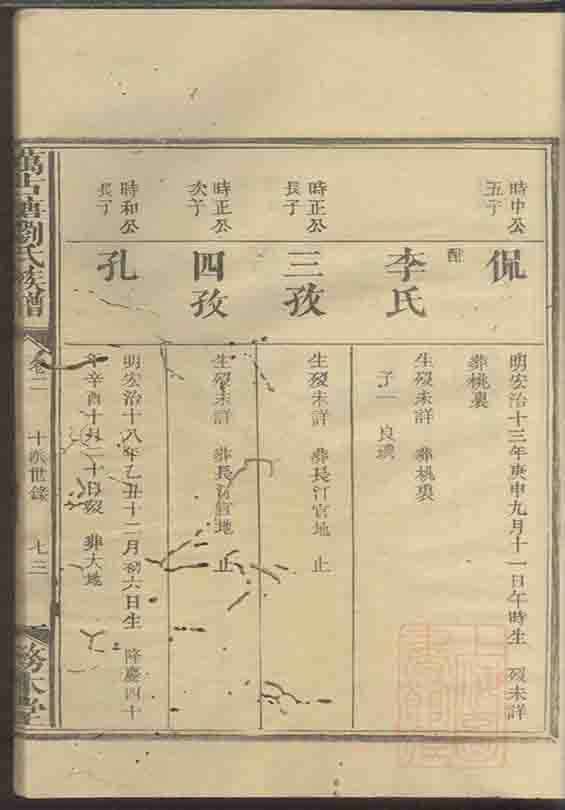 時中公
五子
侃
明宏治十三年庚申九月十一日午時生 歿未詳
葬桃裏
配
李氏
生歿未詳 葬桃裏
子一 良
時正公
長子
三孜
生歿未詳 葬長汀官地 止
時正公
次子
四孜
生歿未詳 葬長汀官地 止
時和公
長子
孔
明宏治十八年乙丑十二月初六日生 隆慶四十
年辛酉十月二十日歿 葬大地
萬古塘劉氏族譜
卷二 十派世錄 七三
務本堂